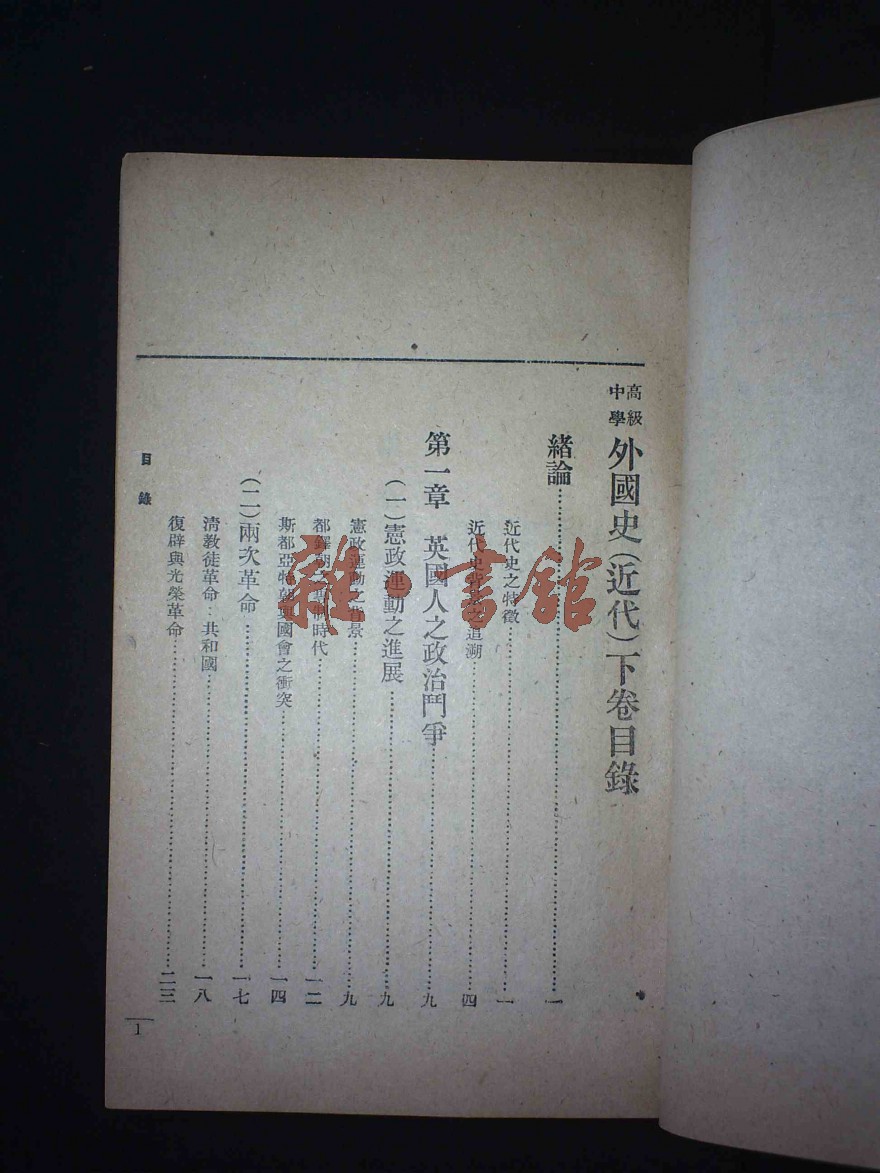 高級中學 外國史(近代)下卷目錄
緒論……一
近代史之特徵……一
近代史 之追溯……四
第一章 英國人之政治鬥爭……九
(一)憲政運動之進展……九
憲政運動之背景……九
都鐸朝之專制時代……一二
斯都亞特朝與國會之衝突……一四
(二)兩次革命……一七
清教徒革命:共和國……一八
復辟與光榮革命……二三
目錄
1
雜·書館